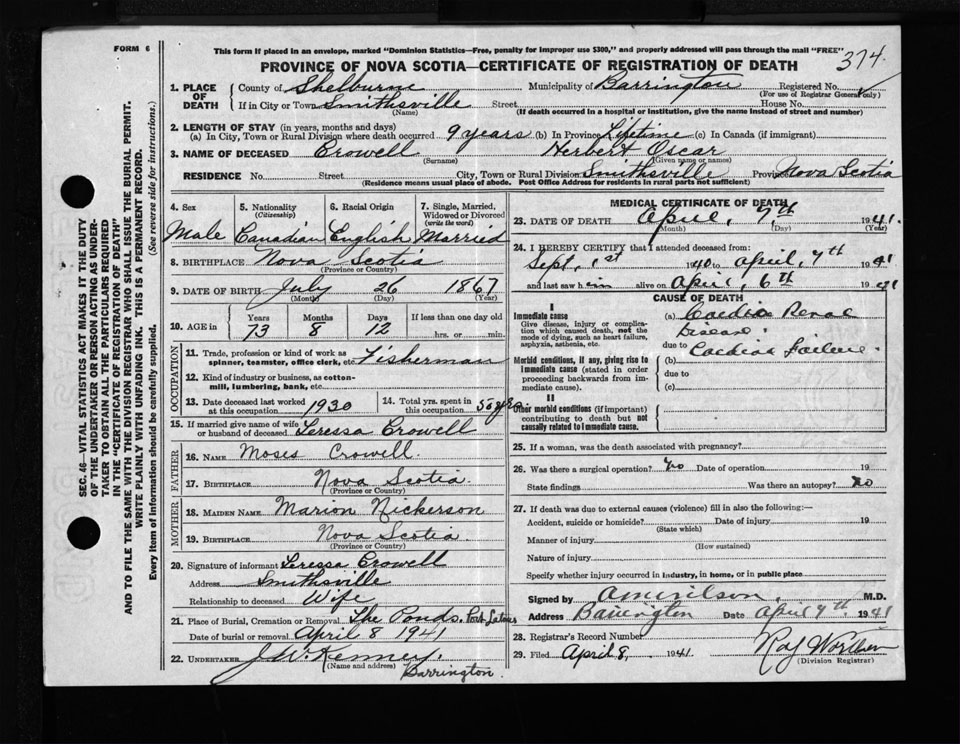 FORM 6
This form if placed in an envelope, marked "Dominion Statistics—Free, penalty for improper use $300," and properly addressed will pass through the mail "FREE"
374
PROVINCE OF NOVA SCOTIA—CERTIFICATE OF REGISTRATION OF DEATH
1. PLACE OF DEATH
County of Shelburne Municipality of Barrington Registered No.
(For use of Registrar General only)
If in City or Town Smithsville Street House No.
(Name) (If death occurred in a hospital or institution, give the name instead of street and number)
2. LENGTH OF STAY (in years, months and days)
(a) In City, Town or Rural Division where death occurred 9 years (b) In Province Lifetime (c) In Canada (if immigrant)
3. NAME OF DECEASED Crowell Herbert Oscar
(Surname) (Given name or names)
RESIDENCE No. Street City, Town or Rural Division Smithsville Province Nova Scotia
(Residence means usual place of abode. Post Office Address for residents in rural parts not sufficient)
4. Sex Male
5. Nationality (Citizenship) Canadian
6. Racial Origin English
7. Single, Married, Widowed or Divorced (write the word) Married
8. BIRTHPLACE Nova Scotia
(Province or Country)
9. DATE OF BIRTH July 26 1867
(Month) (Day) (Year)
10. AGE in Years Months Days If less than one day old
73 8 12 hrs. or min.
OCCUPATION
11. Trade, profession or kind of work as spinner, teamster, office clerk, etc. Fisherman
12. Kind of industry or business, as cotton-mill, lumbering, bank, etc.
13. Date deceased last worked at this occupation 1930
14. Total yrs. spent in this occupation 50 yrs
15. If married give name of wife or husband of deceased Leressa Crowell
FATHER
16. NAME Moses Crowell.
17. BIRTHPLACE Nova Scotia
(Province or Country)
MOTHER
18. MAIDEN NAME Marion Nickerson
19. BIRTHPLACE Nova Scotia
(Province or Country)
20. Signature of informant Leressa Crowell
Address Smithsville
Relationship to deceased Wife
21. Place of Burial, Cremation or Removal The Ponds. Port
Date of burial or removal April 8 1941
22. UNDERTAKER J.W. Kenney.
(Name and address) Barrington.
MEDICAL CERTIFICATE OF DEATH
23. DATE OF DEATH April, 7th 1941.
(Month) (Day) (Year)
24. I HEREBY CERTIFY that I attended deceased from:
Sept, 1st 1940 to April, 7th 1941
and last saw him alive on April, 6th 1941
CAUSE OF DEATH
I
Immediate cause
Give disease, injury or complication which caused death, not the mode of dying, such as heart failure, asphyxia, asthenia, etc.
(a) Cardio Renal Disease.
due to
Morbid conditions, if any, giving rise to immediate cause (stated in order proceeding backwards from immediate cause).
(b) Cardiac Failure
due to
(c)
II
Other morbid conditions (if important) contributing to death but not causally related to immediate cause.
25. If a woman, was the death associated with pregnancy?
26. Was there a surgical operation? No Date of operation 19
State findings Was there an autopsy? No
27. If death was due to external causes (violence) fill in also the following:—
Accident, suicide or homicide? Date of injury 19
(State which)
Manner of injury
(How sustained)
Nature of injury
Specify whether injury occurred in industry, in home, or in public place
Signed by A M Wilson. M.D.
Address Barrington Date April 7th. 1941
28. Registrar's Record Number
29. Filed April 8, 1941. Roy
(Division Registrar)
SEC. 46—VITAL STATISTICS ACT MAKES IT THE DUTY
OF THE UNDERTAKER OR PERSON ACTING AS UNDER-
TAKER TO OBTAIN ALL THE PARTICULARS REQUIRED
IN THE "CERTIFICATE OF REGISTRATION OF DEATH"
AND TO FILE THE SAME WITH THE DIVISION REGISTRAR WHO SHALL ISSUE THE BURIAL PERMIT.
WRITE PLAINLY WITH UNFADING INK. THIS IS A PERMANENT RECORD.
Every item of information should be carefully supplied. (See reverse side for instructions.)